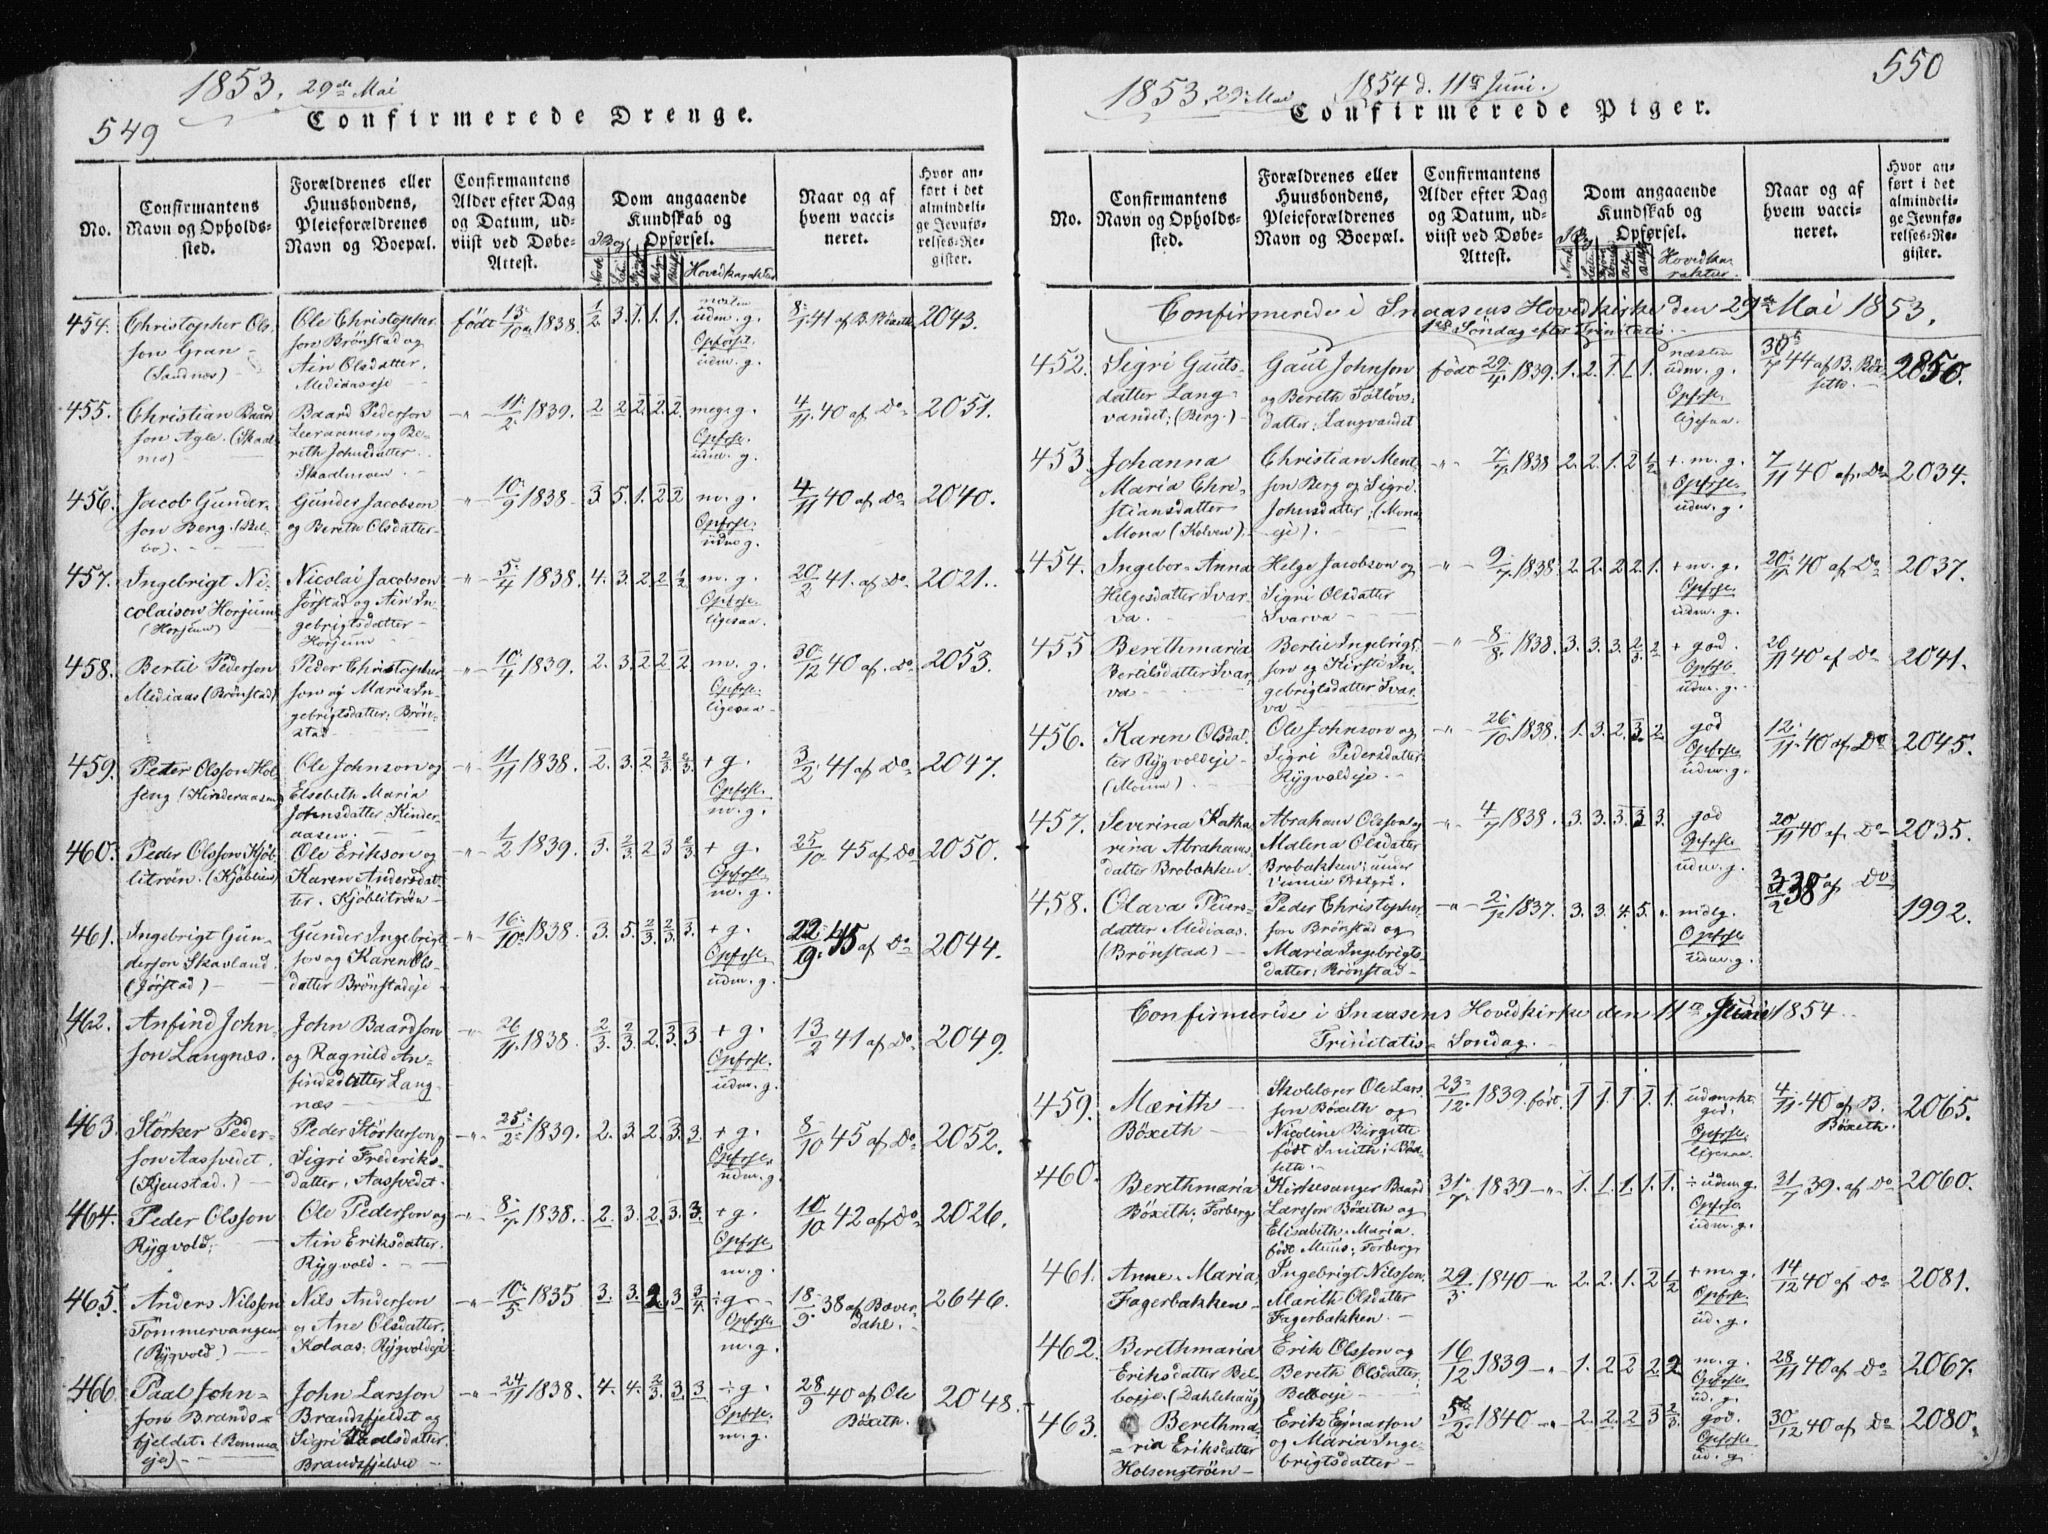 1853. 29de Mai
549
Confirmerede Drenge.
No.
Confirmantens Navn og Opholds-sted.
Forældrenes eller Huusbondens, Pleieforældrenes Navn og Boepæl.
Confirmantens Alder efter Dag og Datum, ud-viist ved Døbe-Attest.
Dom angaaende Kundskab og Opførsel.
Hovedkarakter
Naar og af hvem vacci-neret.
Hvor an-ført i det almindeli-ge Jevnfø-relses-Re-gister.
454. Christopher Ols-
son Gran
(Sandnæs)
Ole Christopher-
son Brönstad og
Ain Olsdatter
Mediaaseje
født 13/10 1838. 1/2 3. 1. 1. 1.
næsten
udm. g.
Opførsl.
udm. g.
8/1 41 af B. Böxeth 2043.
455. Christian Baard-
son Agle. (Skaal-
mo)
Baard Pederson
Leeraanes og Be-
rith Johnsdatter
Skaalmoen
11/2 1839. 2 2 2. 2. 2
meg. g.
Opfrsl.
udm. g.
4/11 40 af Do 2051.
456. Jacob Gunder-
son Berg.
Gunder Jacobson
og Bereth Olsdatter
10/9 1838. 3. 5. 1. 2 2
m. g.
Opfrsl.
udm g.
4/11 40 af Do 2040.
457. Ingebrigt Ni-
colaison Horjum
(Horjum)
Nicolai Jacobson
Jörstad og Ain In-
gebrigtsdatter
Horjum
5/4 1838. 4. 3. 2 2 1/2
m. g.
Opfrsl.
ligesaa.
20/2 41. af Do 2021.
458. Bertil Pederson
Mediaas (Brönstad)
Peder Christopher-
son og Maria In-
gebrigtsdatter, Brön-
stad
10/4 1839. 2. 3. 2 2. 2
m. g.
Opfrsl.
ligesaa
30/12 40 af. Do 2053.
459. Peder Olsson Hol-
seng (Kinderaasen)
Ole Johnson og
Elsebeth Maria
Johnsdatter, Kinder-
aasen.
11/11 1838. 2. 3. 2 2/3 2/3
+ g.
Opfrsl.
m. g.
3/2 41 af Do 2047.
460. Peder Olsson Kjöb-
litröen. (Kjöblien)
Ole Erikson og
Karen Andersdat-
ter. Kjöblitröen
1/2 1839. 3. 2/3 2 3 2/3
+ g.
Opfrsl.
m. g.
25/10 45 af Do 2050.
461. Ingebrigt Gun-
derson Skavland
(Jörstad)
Gunder Ingebrigt-
son og Karen Ols-
datter Brönstadeje
16/10 1838. 3. 5. 2/3 2/3 3.
+ g.
Opfrsl.
udm. g.
22/9 45 af Do 2044.
462. Anfind John-
son Langnæs.
John Baardson
og Ragnild An-
findsdatter Lang-
næs
26/11 1838. 2/3 2/3 2. 3 3
+ g.
Opfrsl.
udm. g.
13/2 41 af Do 2049.
463. Störker Peder-
son Aassvedet.
Peder Störkerson og
Sigri Frederiks-
datter, Aassvedet.
25/2 1839. 2. 3. 2. 3. 3.
+ g.
Opfrsl.
udm. g.
8/10 45 af Do 2052.
464. Peder Olsson
Rygvold,
Ole Pederson og
Ain Eriksdatter.
Rygvold.
8/7 1838. 2. 3. 2. 3. 3.
+ g.
Opfrsl.
m. g.
10/10 42 af Do 2026.
465. Anders Nilsson
Tömmervangen
(Rygvold)
Nils Anderson
og Ane Olsdatter.
Kolaas; Rygvoldeje
10/5 1835 3. 3. 2. 3 3/4
÷ g.
Opfrsl.
m. g.
18/9 38 af Bæver-
dahl. 2646.
466. Paal John-
son Brands-
fjeldet.
John Larsson
Brandsfjeldet og
Sigri Paalsdatter.
Brandsfjeldet
24/11 1838. 4. 4. 2/3 3. 3
÷ g.
Opfrsl.
m. g.
28/9 40 af Ole
Böxeth. 2048.
550
1853. 29de Mai 1854 d. 11te Juni.
Confirmerede Piger.
No.
Confirmantens Navn og Opholds-sted.
Forældrenes eller Huusbondens, Pleieforældrenes Navn og Boepæl.
Confirmantens Alder efter Dag og Datum, ud-viist ved Døbe-Attest.
Dom angaaende Kundskab og Opførsel.
Hovedka-
rakter.
Naar og af hvem vacci-neret.
Hvor an-ført i det almindeli-ge Jevnfø-relses-Re-gister.
Confirmerede i Snaasens Hovedkirke den 29de Mai 1853.
1ste Söndag efter Trinitatis.
452. Sigri Gauts-
datter Lang-
vandet; (Berg.)
Gaut Johnson
og Bereth Tollövs-
datter; Langvandet
født 29/4 1839. 1. 2. 1. 1. 1.
næsten
udm. g.
Opfrsl.
ligesaa.
30/7 44 af B. Böx-
seth. 2850.
453. Johanna
Maria Chri-
stiansdatter
Mona (Kolven)
Christian Ment-
son Berg og Sigri
Johnsdatter; (Mona-
eje).
7/7 1838 2. 2. 1. 2 1/2
+ m. g.
Opfrsl.
udm. g.
7/11 40 af. Do 2034.
454. Ingebor-Anna
Helgesdatter Svar-
va.
Helge Jacobson og
Sigri Olsdatter
Svarva
9/7 1838 2. 2. 2 2. 1.
+ m. g.
Opfrsl.
udm. g.
20/11 40 af Do 2037.
455 Berethmaria
Bertilsdatter Svar-
va
Bertil Ingebrigt-
son og Kirsti In-
gebrigtsdatter Svar-
va
8/8 1838. 3. 3. 3. 2/3 2
+ god.
Opfrsl.
udm. g.
20/11 40 af Do 2041.
456. Karen Olsdat-
ter Rygvoldeje
(Moum)
Ole Johnson og
Sigri Pedersdatter
Rygvoldeje.
26/10 1838. 1. 3. 2. 3. 2.
god
Opfrsl.
udm. g.
12/11 40 af Do 2045.
457. Severina Katha-
rina Abrahams-
datter Brobakken.
Abraham Olsson og
Malena Olsdatter
Brobakken; under
Vinnie Præstgrd.
4/7 1838. 3. 3. 3. 3 3.
god
Opfrsl.
udm. g.
20/11 40 af Do 2035.
458. Olava Peders-
datter Mediaas.
(Brönstad)
Peder Christopher-
son Brönstad og
Maria Ingebrigts-
datter; Brönstad
2/12 1837. 3. 3. 4. 5.
mdlg.
Opfrsl.
udm. g.
3/2 38 af Do 1992.
Confirmerede i Snaasens Hovedkirke den 11te Juni 1854.
Trinitatis Söndag.
459. Mærith
Böxeth
Skolelærer Ole Lars-
son Böxeth og
Nicoline Birgitte
født Smith; Böx-
seth.
23/12 1839. født. 1 1 1 1. 1.
udmrkt.
god.
Opfrsl.
ligesaa.
4/11 40 af B.
Böxeth. 2065.
460. Berethmaria
Böxeth; Forberg
Kirkesanger Baard
Larsson Böxeth og
Elisabeth Maria
født Muus; Forberg
31/7 1839 1. 1. 1. 1. 1.
÷ udm. g.
Opfrsl.
udm. g.
31/7 39. af Do 2060.
461. Anne-Maria
Fagerbakken
Ingebrigt Nilsson
Marith Olsdatter
Fagerbakken.
29/3 1840 2. 2. 1. 2 1/2
+ m. g.
Opfrsl.
ud. g.
14/12 40 af Do 2081.
462. Berethmaria
Eriksdatter Bel-
boeje. (Dahlehaug)
Erik Olsson og
Bereth Olsdatter;
Belboeje
16/12 1839 1. 2 2 2. 2
m. g.
Opfrsl.
ud. g.
28/11 40 af Do 2067.
463. Berethma-
ria Eriksdatter
Holsengtröen
Erik Ejnarsson
og Maria Inge-
brigtsdatter
5/2 1840 2. 2. 2 3 2/3
god.
Opfrsl.
ud. g.
30/12 40 af Do 2080.